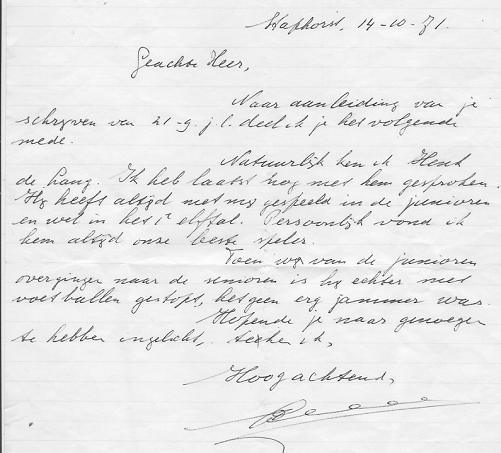 Staphorst, 14-10-71.
Geachte Heer,
Naar aanleiding van je
schrijven van 21-9. j.l. deel ik je het volgende
mede.
Natuurlijk ken ik Henk
de Lang. Ik heb laatst nog met hem gesproken.
Hij heeft altijd met mij gespeeld in de junioren
en wel in het 1e elftal. Persoonlijk vond ik
hem altijd onze beste speler.
Toen wij van de junioren
overgingen naar de senioren is hij echter met
voetballen gestopt, hetgeen erg jammer was.
Hopende je naar genoegen
te hebben ingelicht, teken ik,
Hoogachtend,